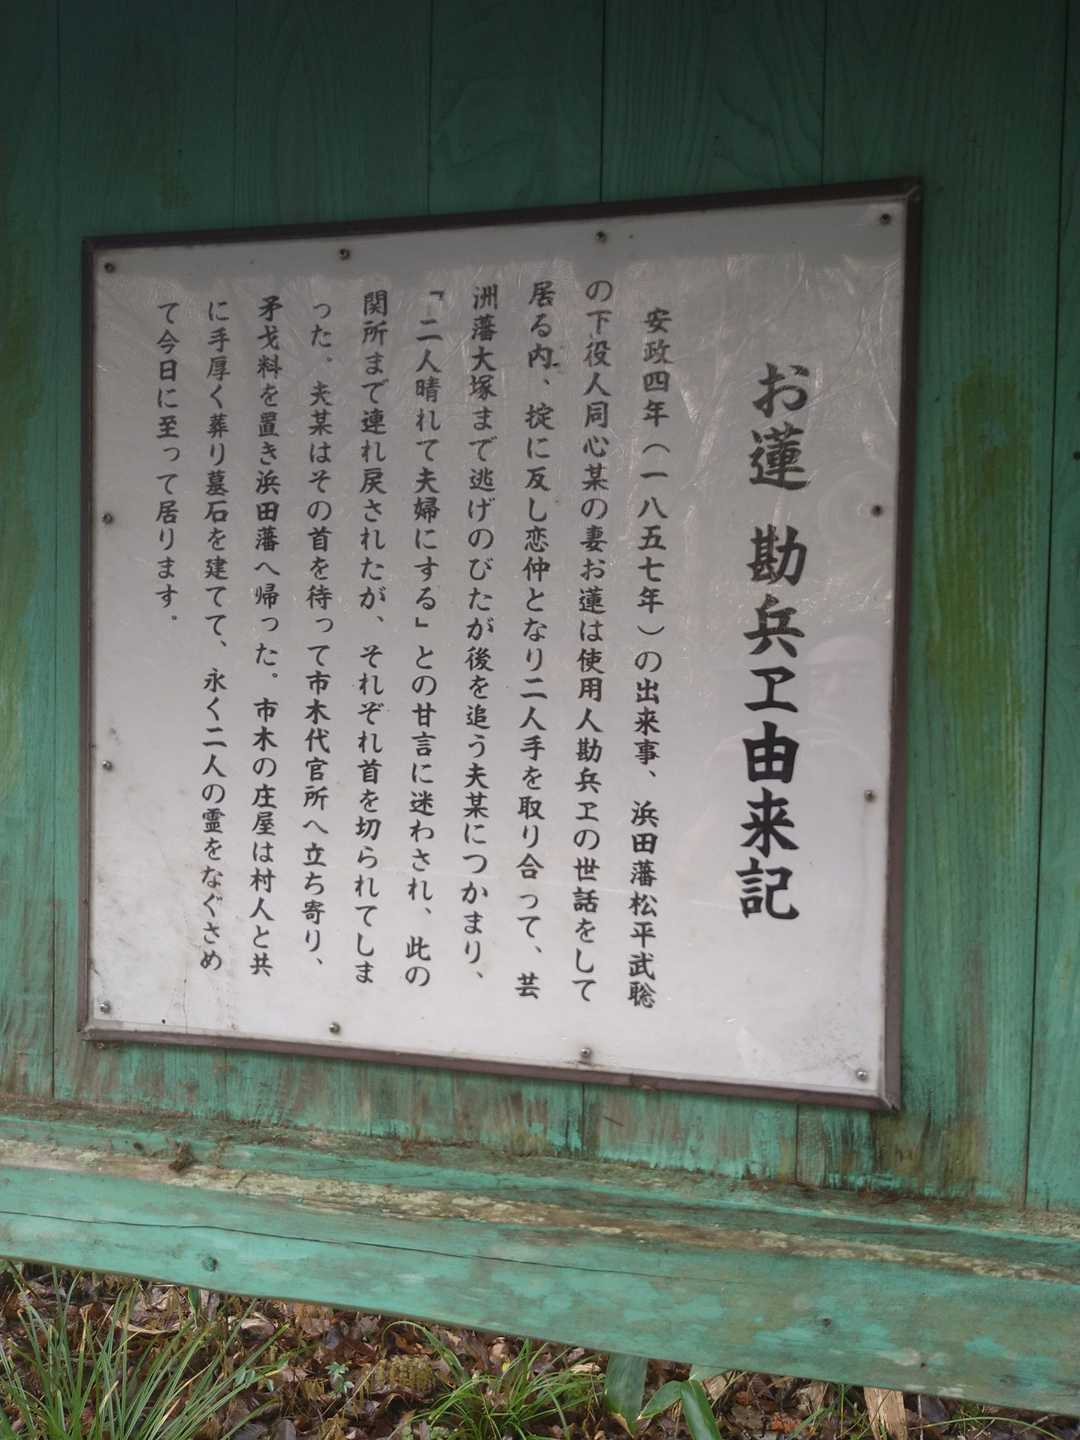 お蓮 勘兵ヱ由来記
安政四年（一八五七年）の出来事、浜田藩松平武聡
の下役人同心某の妻お蓮は使用人勘兵ヱの世話をして
居る内、掟に反し恋仲となり二人手を取り合って、芸
洲藩大塚まで逃げのびたが後を追う夫某につかまり、
「二人晴れて夫婦にする」との甘言に迷わされ、此の
関所まで連れ戻されたが、それぞれ首を切られてしま
った。夫某はその首を待って市木代官所へ立ち寄り、
矛戈料を置き浜田藩へ帰った。市木の庄屋は村人と共
に手厚く葬り墓石を建てて、永く二人の霊をなぐさめ
て今日に至って居ります。